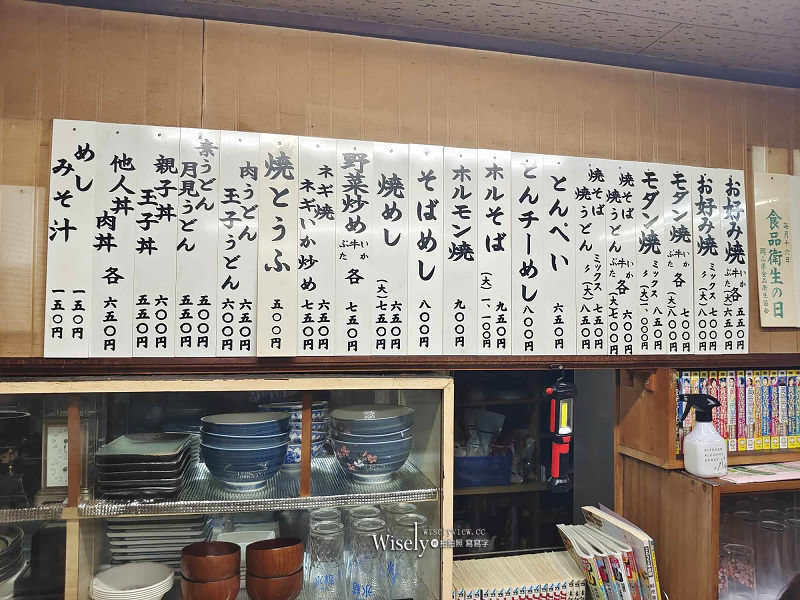 お好み焼 いか 牛 ぶた 各 五五〇円 (大)六五〇円
お好み焼 ミックス 七〇〇円 〃 (大)八〇〇円
モダン焼 いか 牛 ぶた 各 七〇〇円 (大)八〇〇円
モダン焼 ミックス 八五〇円 〃 (大)一、〇〇〇円
焼そば 焼うどん いか 牛 ぶた 各 六〇〇円 (大)七〇〇円
焼そば 焼うどん ミックス 七五〇円 〃 (大)八五〇円
とんぺい 六五〇円
とんチーめし 八〇〇円
ホルそば (大)一、一〇〇円 九〇〇円
ホルモン焼 九〇〇円
そばめし 八〇〇円
焼めし 六五〇円 (大)七五〇円
野菜炒め いか 牛 ぶた 各 七五〇円
ネギ焼 六五〇円
ネギいか炒め 七五〇円
焼とうふ 五〇〇円
肉うどん 六五〇円
玉子うどん 六〇〇円
素うどん 五〇〇円
月見うどん 五五〇円
親子丼 六〇〇円
玉子丼 五五〇円
他人丼 肉丼 各 六五〇円
めし 一五〇円
みそ汁 一五〇円
毎月十六日
食品衛生の日
岡山県食品衛生協会
KITCHEN
ALCOHOL
SPRAY
wiselyview.cc
Wisely 拍拍照寫寫字